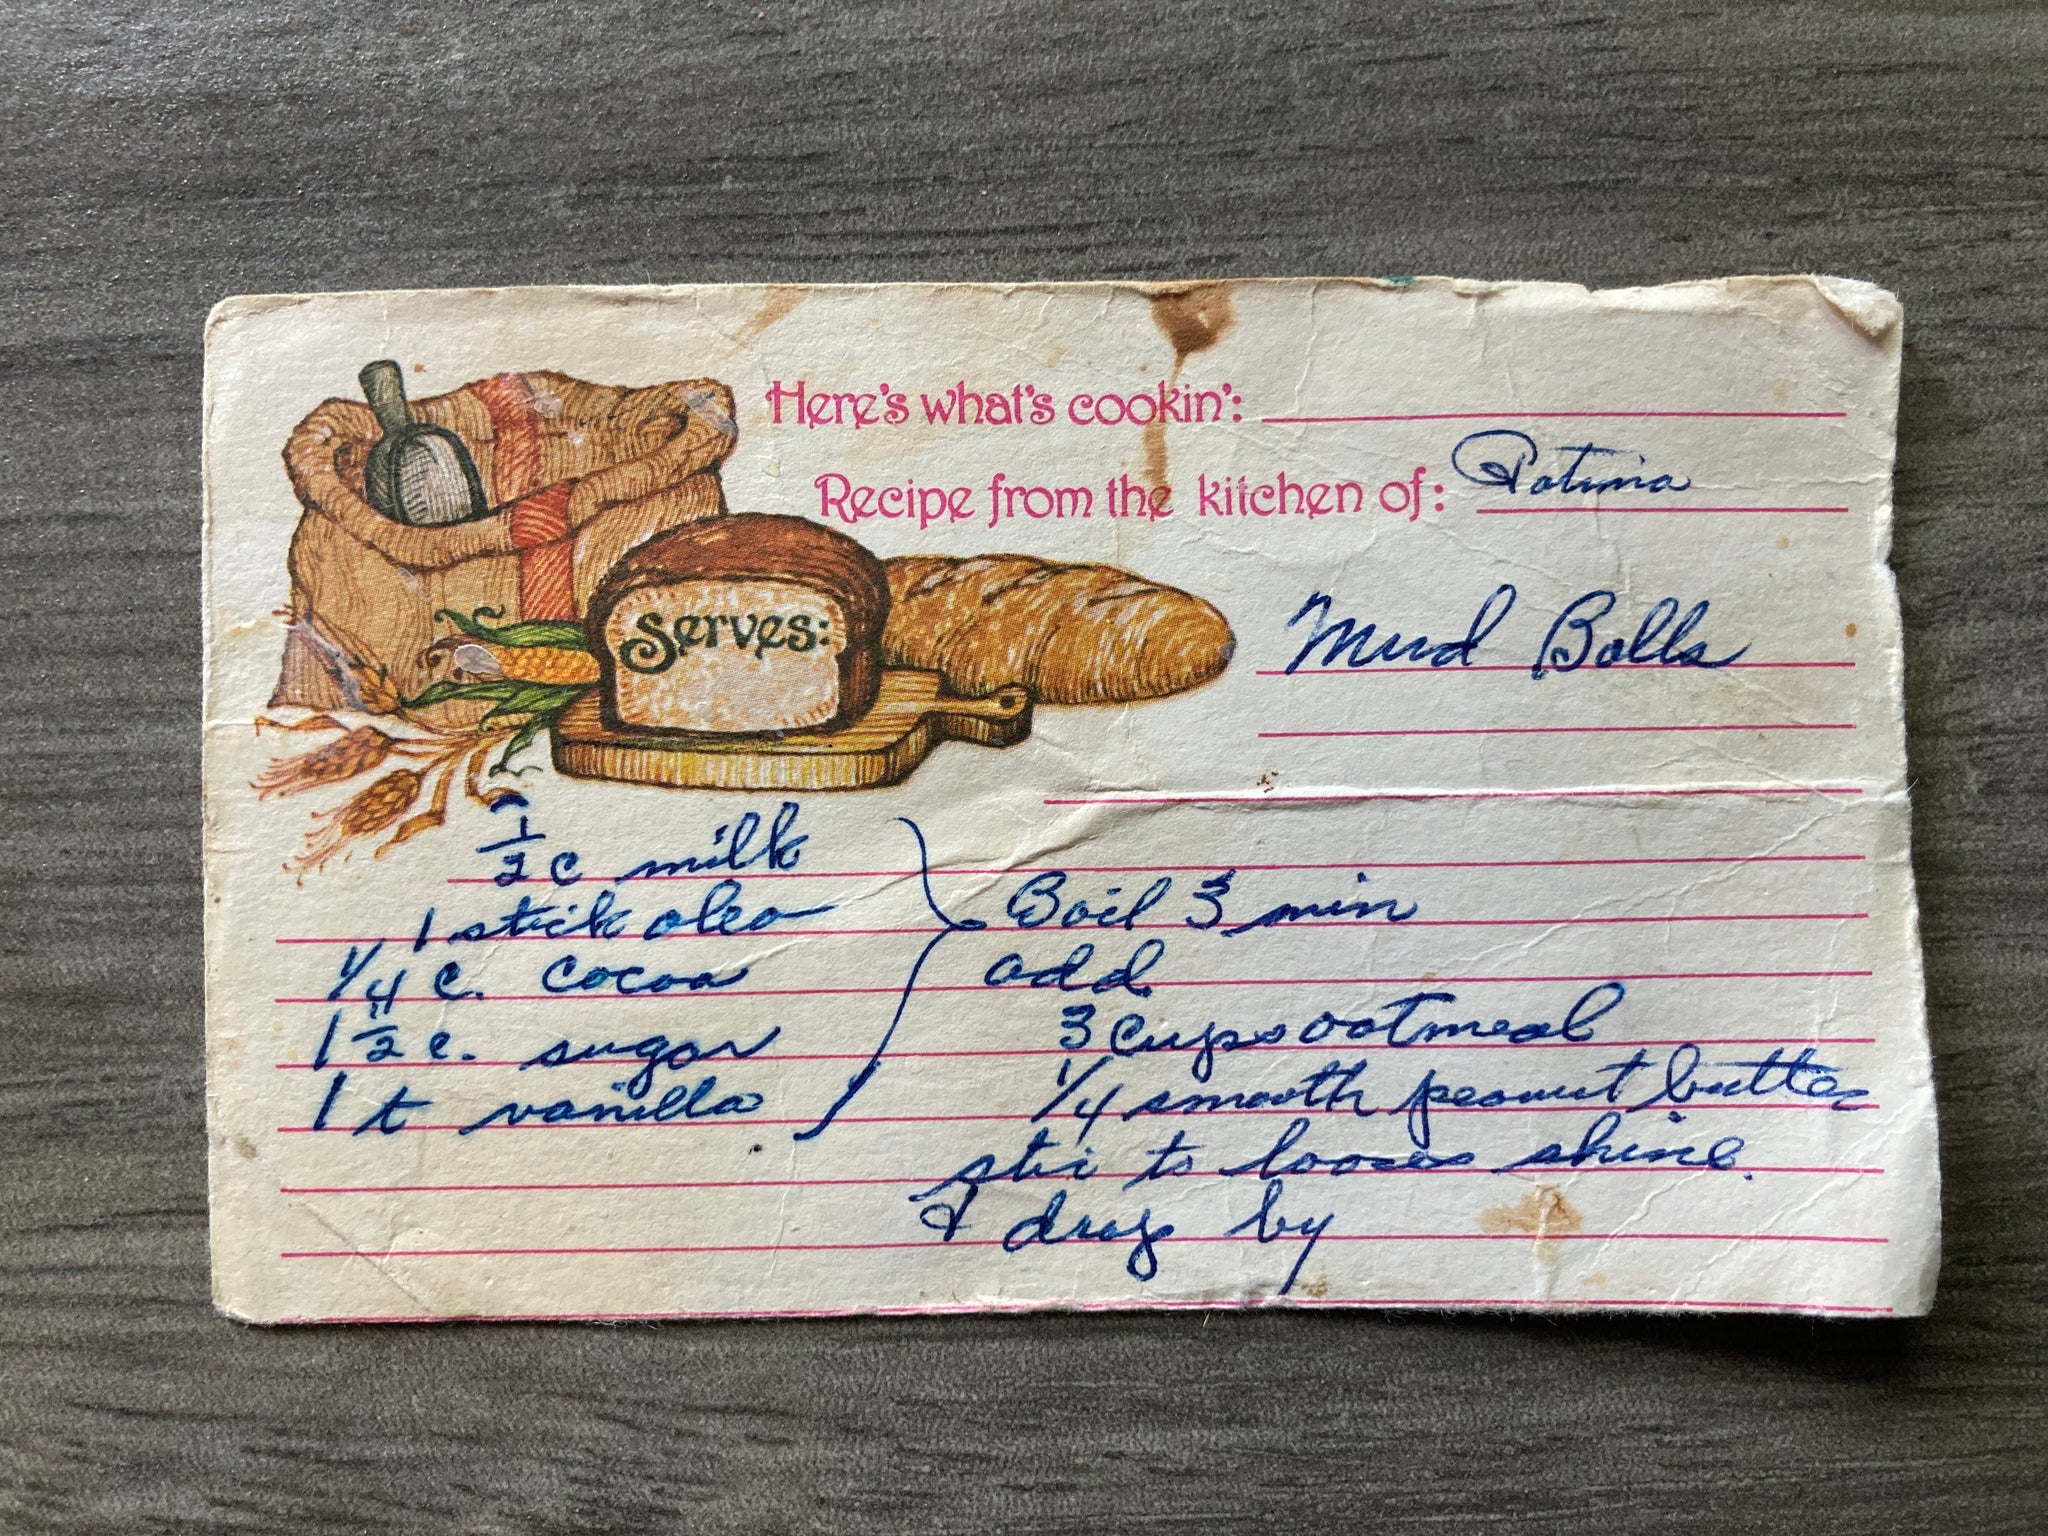 Here's what's cookin':
Recipe from the kitchen of: Patima
Serves:
Mud Balls
1/2 c milk
1 stick oleo
1/4 c. cocoa
1 1/2 c. sugar
1 t vanilla
Boil 3 min
add
3 cups oatmeal
1/4 smooth peanut butter
stir to looses shine.
& drop by